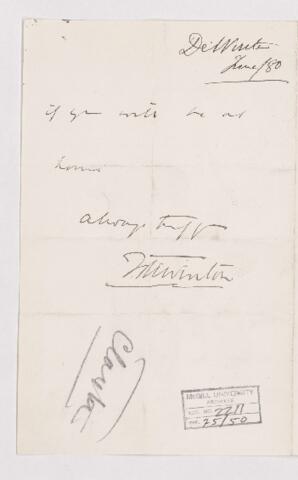 De Winton
June/80
if you will be at
home
always truly
FdeWinton
Clarke
McGILL UNIVERSITY
ARCHIVES
ACC. NO. 2217
REF. 25/50